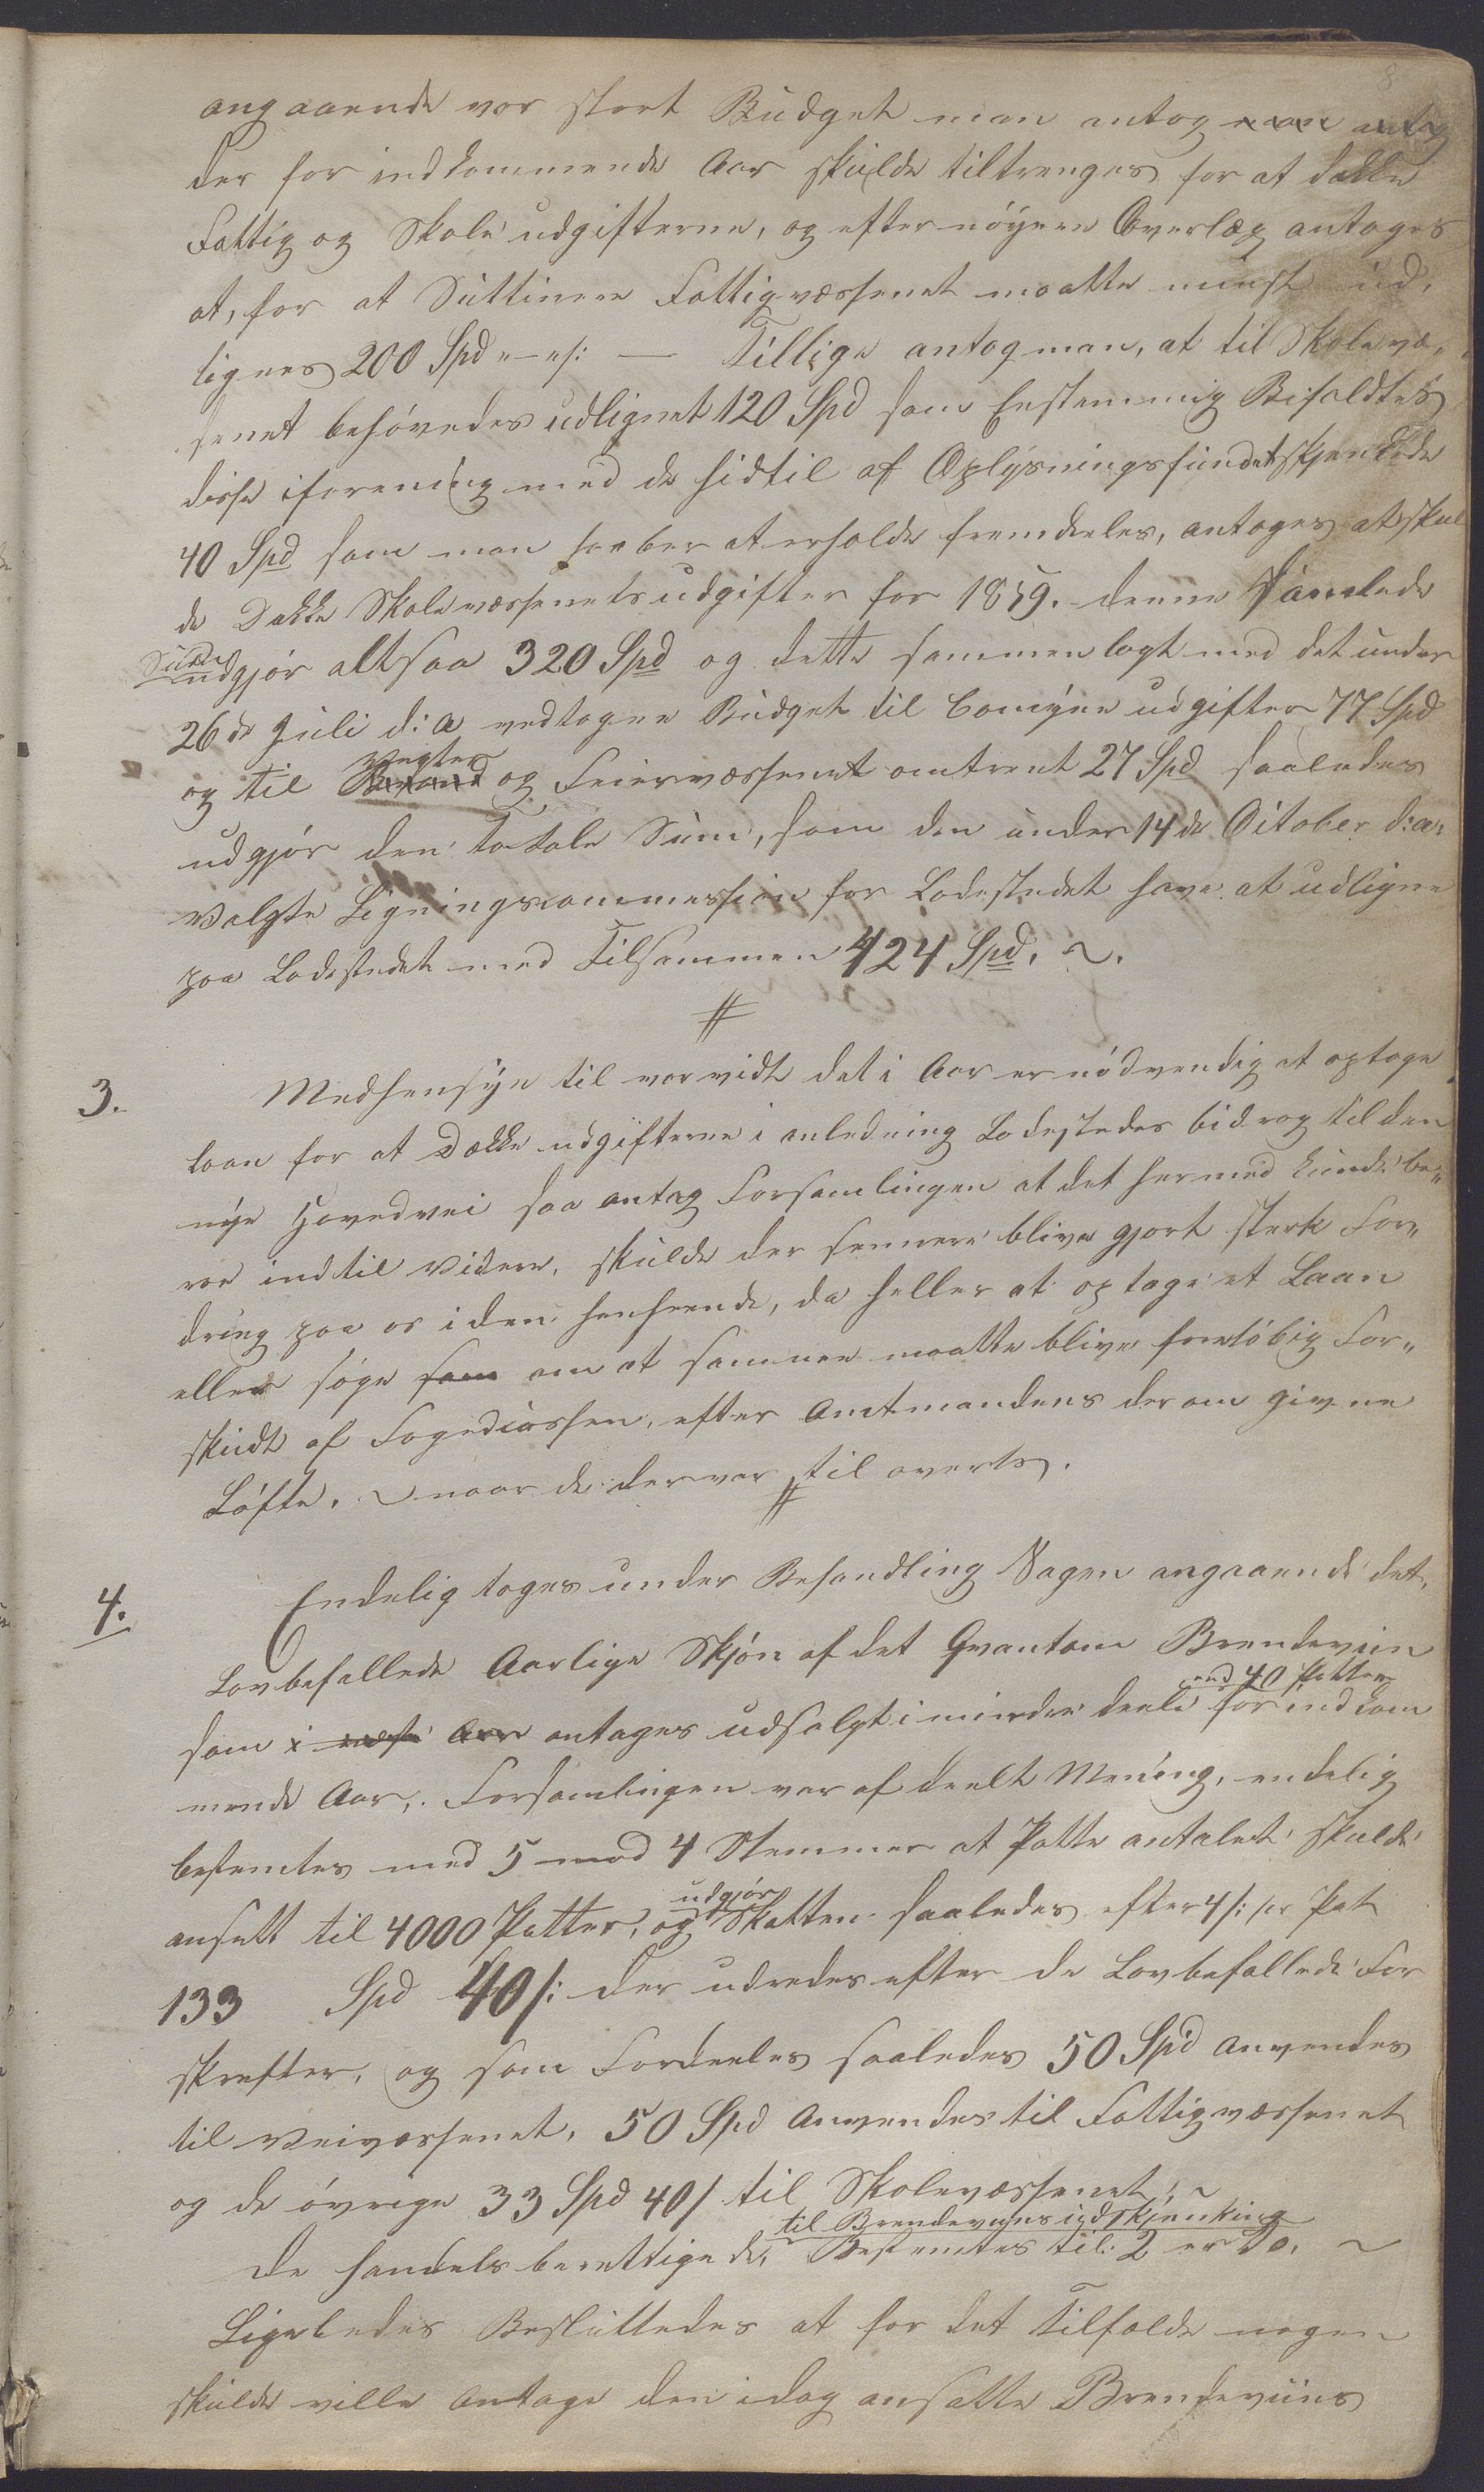 8
angaaende vor stort Budget man antog man antog
der for indkommende Aar skulde tiltrenges for at dække
Fattig og Skole udgifterne, og efter nöyere Overlæg antoges
at, for at Suttinere Fattigvæssenet maatte minst ud,
lignes 200 Spd "—"s: — Tillige antog man, at til Skolevæ,
senet behövedes udlignet 120 Spd som Enstemmig Bifaldtes
disse iforening med de hidtil af Oplysningsfundet skjenkede
40 Spd som man haaber at erholde fremdeles, antoges at skul
de Dække Skolevæssenets udgifter for 1859. denne Samlede
Sum
udgjör altsaa 320 Spd og dette sammenlagt med det under
26de Juli d:a vedtagne Budget til Comyne udgifter 77 Spd
vegter
og til Brand og Feiervæssenet omtrent 27 Spd saaledes
udgjör den totale Sum, som den under 14de Oitober d:a:
Valgte Ligningscommession for Ladestedet have at udligne
paa Ladestedet med Tilsammen 424 Spd. ~.
#
3. Medhensyn til vorvidt det i Aar er nödvendig at optage
laan for at Dække udgifterne i anledning Ladestedes bidrag til den
nye Hovedvei saa antog Forsamlingen at det hermed kunde be„
roe indtil Videre, skulde der sennere blive gjort sterk For„
dring paa os i den henseende, da heller at optage et Laan
eller söge som om at samme maatte blive forelöbig For„
skudt af Fogedcassen, efter Amtmandens derom givne
Löfte. ~ naar de der var til overts.
#
4. Endelig toges under Behandling Sagen angaaende det,
Lovbefallede Aarlige Skjön af det Qvantom Brendeviin
end 40 Potter
som i næste Aar antages udsalgt i mindre deele for indkom
mende Aar,. Forsamlingen var af deelt Mening, endelig
bestemtes med 5 mod 4 Stemmer at Potte antalet skulde
udgjör
ansett til 4000 Potter, og Skatten saaledes efter 4 s: pr Pot
133 Spd 40 s: der udredes efter de Lovbefallede For
skrefter, og som Fordeeles saaledes 50 Spd anvendes
til Veivæssenet, 50 Spd Anvendes til Fattigvæssenet
og de övrige 33 Spd 40 s til Skolevæssenet, ~
til Brendeviins udskjenking
De handelsberettigede, Bestemtes til: 2 er To. ~
Ligeledes Besluttedes at for det Tilfælde nogen
skulde ville Antage den idag ansatte Brendeviins